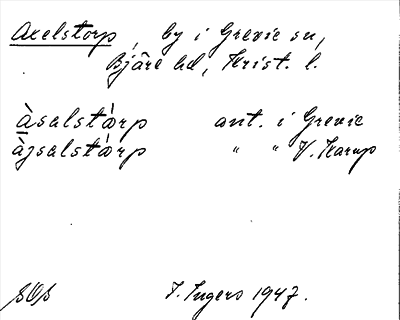 Axelstorp, by i Grevie sn,
Bjäre hd, Krist. l.
àsalstàrp ant. i Grevie
àjsalstàrp " " V. Karup
I. Ingers 1947.